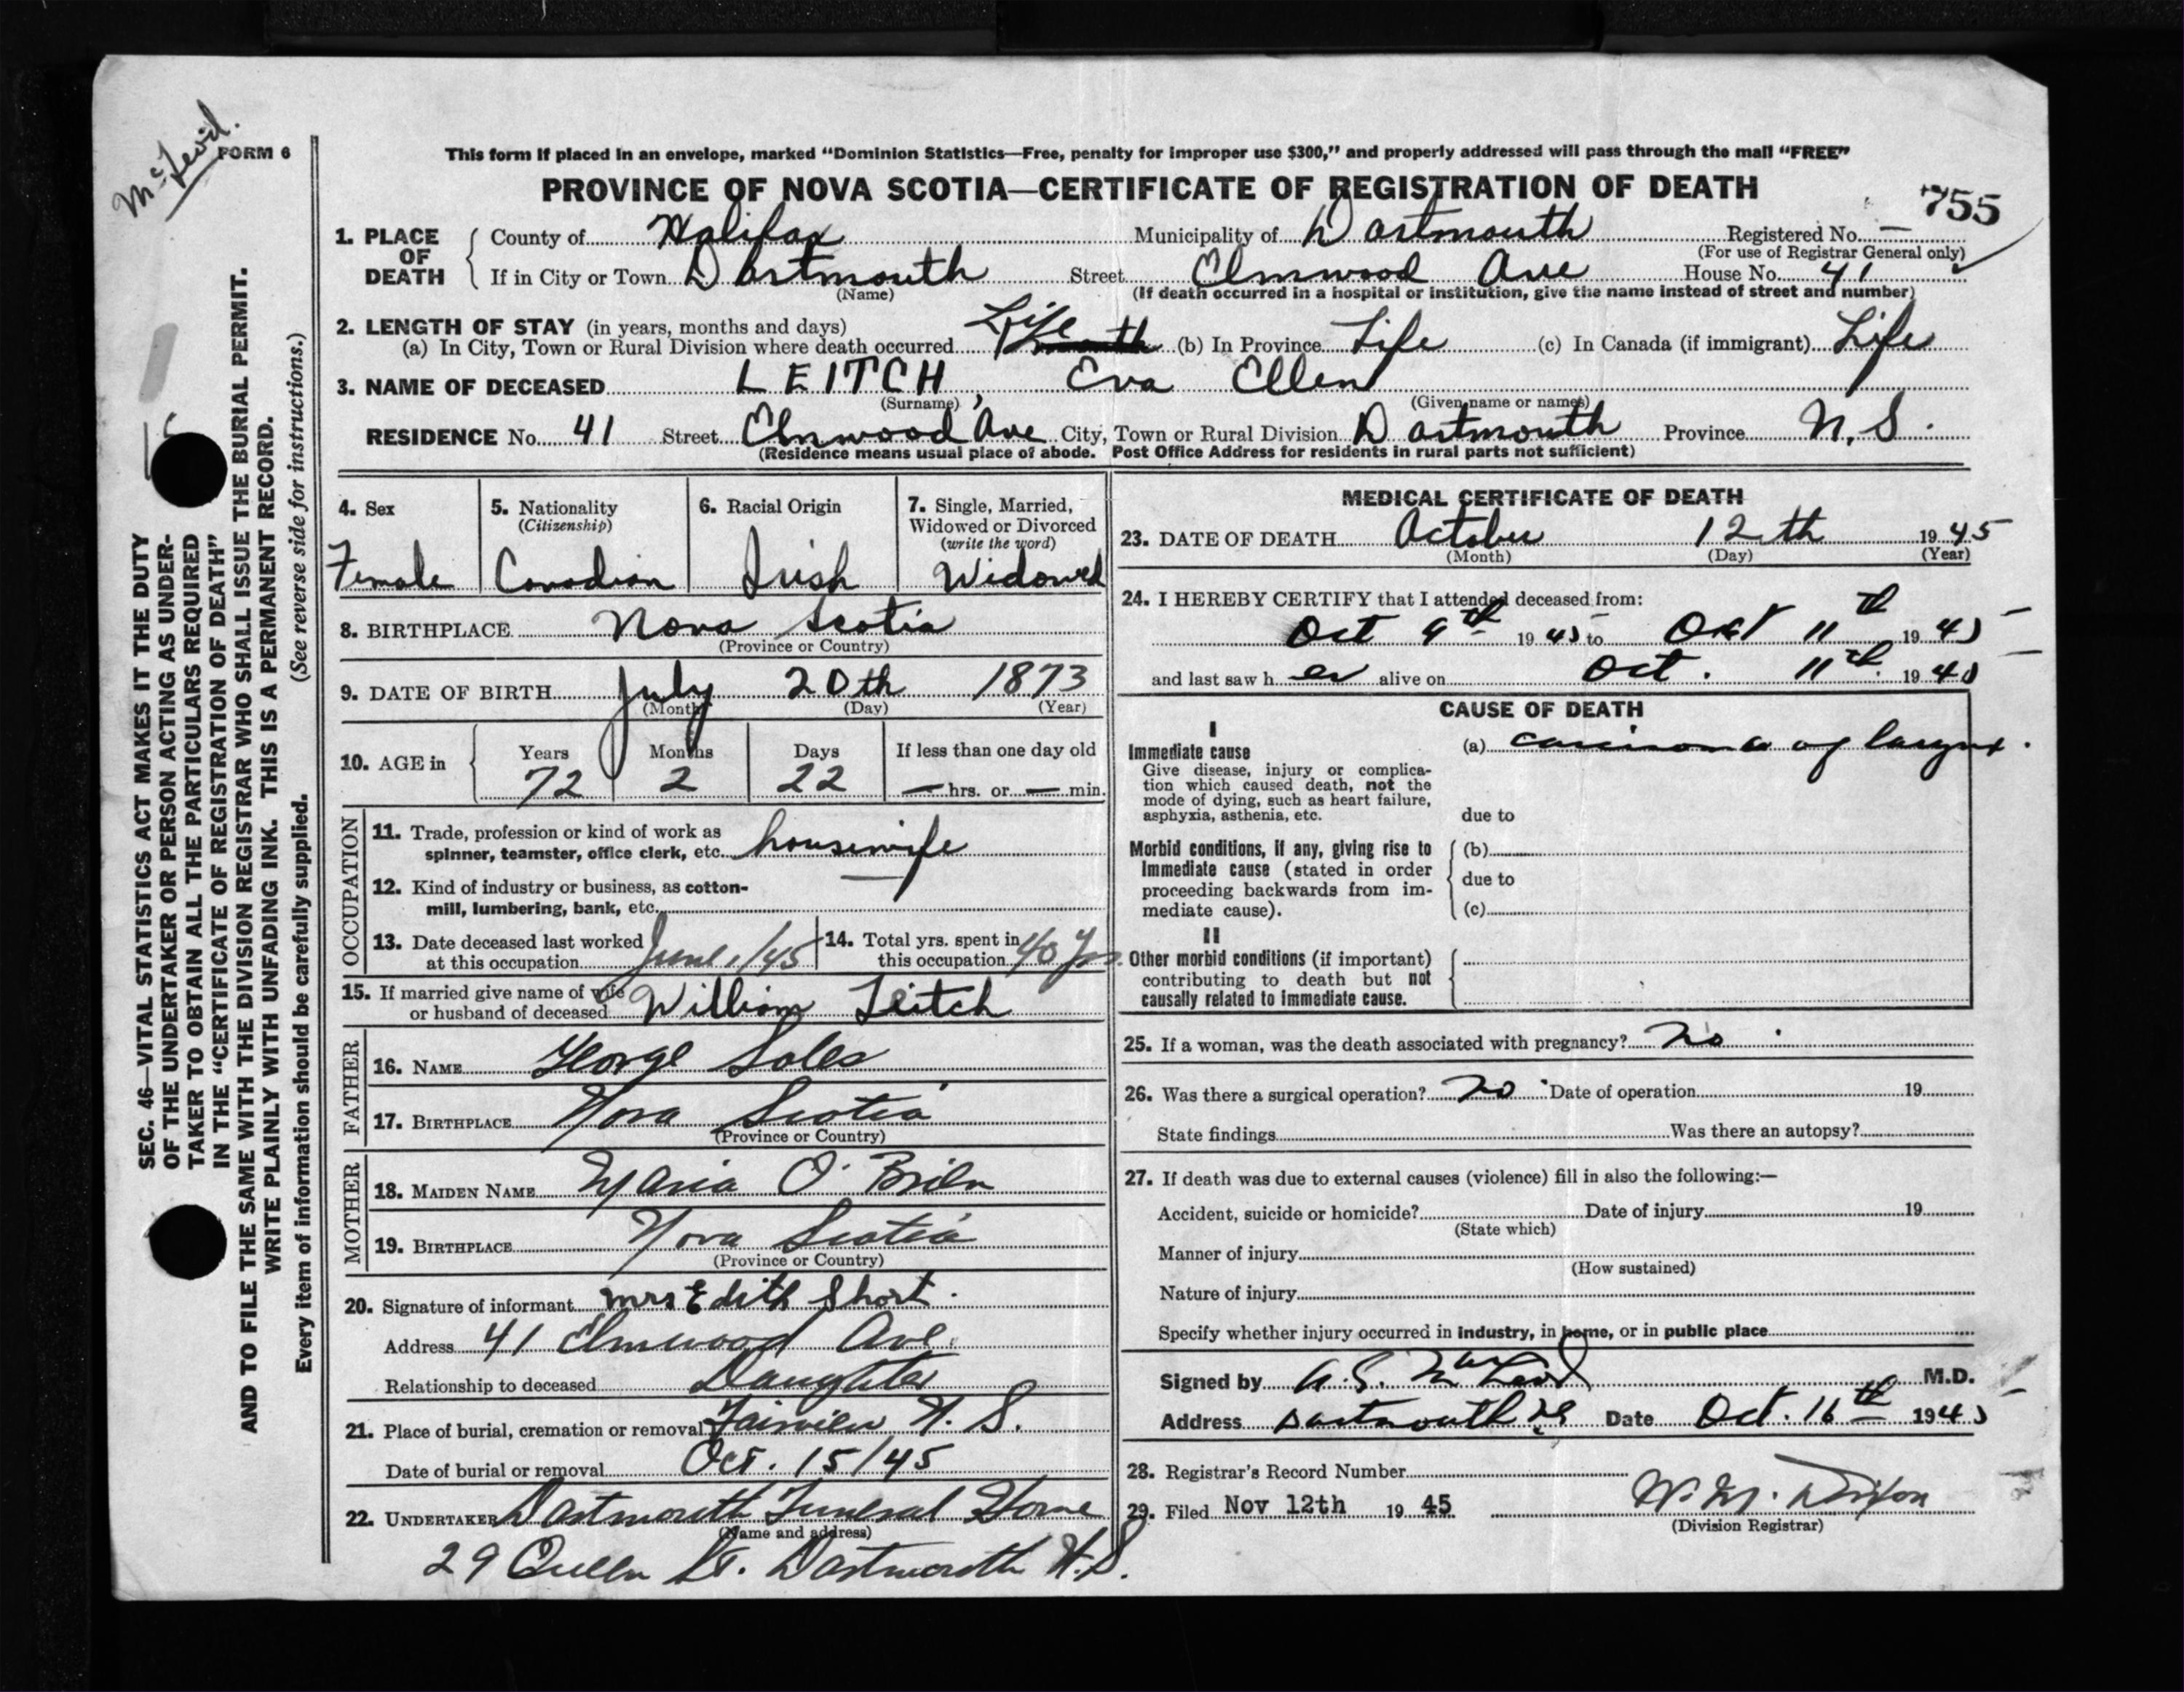 FORM 6
This form if placed in an envelope, marked “Dominion Statistics—Free, penalty for improper use $300,” and properly addressed will pass through the mail “FREE”
PROVINCE OF NOVA SCOTIA—CERTIFICATE OF REGISTRATION OF DEATH
755
1. PLACE OF DEATH County of Halifax Municipality of Dartmouth Registered No. —
(For use of Registrar General only)
If in City or Town Dartmouth Street Elmwood Ave House No. 41
(Name) (If death occurred in a hospital or institution, give the name instead of street and number)
2. LENGTH OF STAY (in years, months and days)
(a) In City, Town or Rural Division where death occurred Life (b) In Province Life (c) In Canada (if immigrant) Life
3. NAME OF DECEASED LEITCH, Eva Ellen
(Surname) (Given name or names)
RESIDENCE No. 41 Street Elmwood Ave City, Town or Rural Division Dartmouth Province N.S.
(Residence means usual place of abode. Post Office Address for residents in rural parts not sufficient)
4. Sex Female
5. Nationality (Citizenship) Canadian
6. Racial Origin Irish
7. Single, Married, Widowed or Divorced (write the word) Widowed
8. BIRTHPLACE Nova Scotia
(Province or Country)
9. DATE OF BIRTH July 20th 1873
(Month) (Day) (Year)
10. AGE in Years 72 Months 2 Days 22 If less than one day old — hrs. or — min.
OCCUPATION
11. Trade, profession or kind of work as
spinner, teamster, office clerk, etc. housewife
12. Kind of industry or business, as cotton-
mill, lumbering, bank, etc. —
13. Date deceased last worked
at this occupation June 1/45
14. Total yrs. spent in
this occupation 40 Yrs.
15. If married give name of wife
or husband of deceased William Leitch
FATHER
16. NAME George Soles
17. BIRTHPLACE Nova Scotia
(Province or Country)
MOTHER
18. MAIDEN NAME Maria O'Brien
19. BIRTHPLACE Nova Scotia
(Province or Country)
20. Signature of informant Mrs Edith Short.
Address 41 Elmwood Ave.
Relationship to deceased Daughter
21. Place of burial, cremation or removal Fairview N.S.
Date of burial or removal Oct. 15/45
22. UNDERTAKER Dartmouth Funeral Home
(Name and address)
29 Queen St. Dartmouth N.S.
MEDICAL CERTIFICATE OF DEATH
23. DATE OF DEATH October 12th 1945
(Month) (Day) (Year)
24. I HEREBY CERTIFY that I attended deceased from:
Oct 9th 1945 to Oct 11th 1945
and last saw her alive on Oct. 11th 1945
CAUSE OF DEATH
I
Immediate cause (a) carcinoma of larynx.
Give disease, injury or complica-
tion which caused death, not the
mode of dying, such as heart failure,
asphyxia, asthenia, etc. due to
Morbid conditions, if any, giving rise to (b)
immediate cause (stated in order
proceeding backwards from im- due to
mediate cause). (c)
II
Other morbid conditions (if important)
contributing to death but not
causally related to immediate cause.
25. If a woman, was the death associated with pregnancy? no
26. Was there a surgical operation? no Date of operation 19
State findings Was there an autopsy?
27. If death was due to external causes (violence) fill in also the following:—
Accident, suicide or homicide? Date of injury 19
(State which)
Manner of injury
(How sustained)
Nature of injury
Specify whether injury occurred in industry, in home, or in public place
Signed by M.D.
Address Dartmouth NS Date Oct. 16th 1945
28. Registrar's Record Number
29. Filed Nov 12th 1945 W. M. Dixon
(Division Registrar)
SEC. 46—VITAL STATISTICS ACT MAKES IT THE DUTY
OF THE UNDERTAKER OR PERSON ACTING AS UNDER-
TAKER TO OBTAIN ALL THE PARTICULARS REQUIRED
IN THE “CERTIFICATE OF REGISTRATION OF DEATH”
AND TO FILE THE SAME WITH THE DIVISION REGISTRAR WHO SHALL ISSUE THE BURIAL PERMIT.
WRITE PLAINLY WITH UNFADING INK. THIS IS A PERMANENT RECORD.
Every item of information should be carefully supplied. (See reverse side for instructions.)